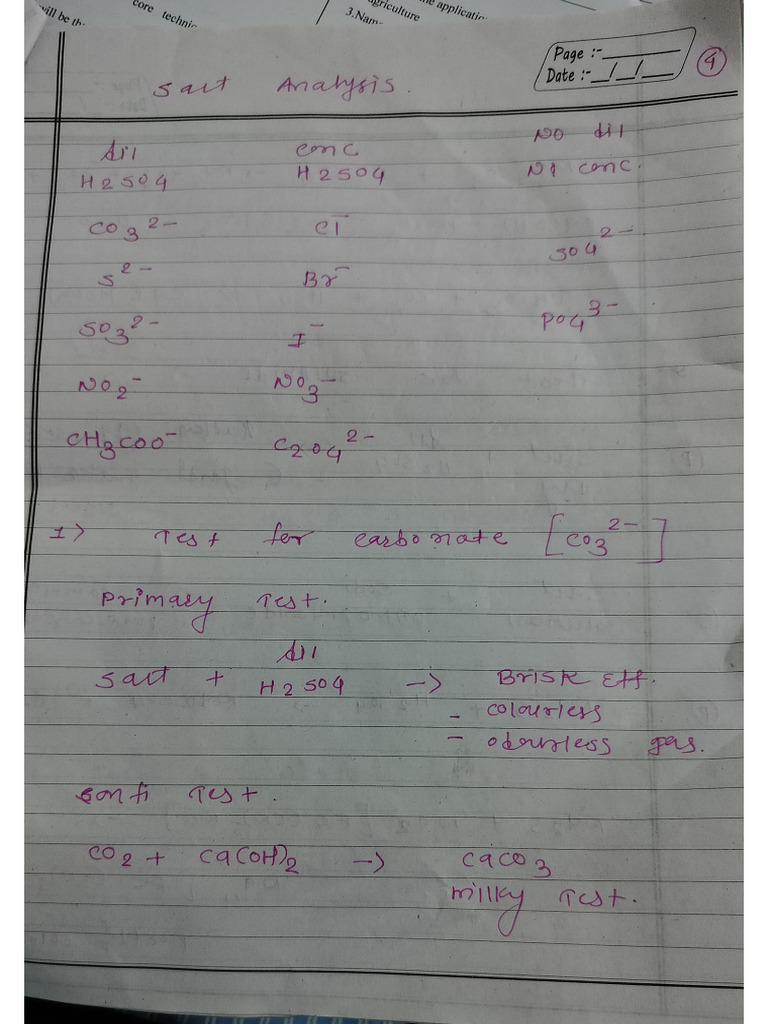 will be th
core technic
agriculture
3.Nam
the applicatio
Page :-
Date :- / /
4
Salt Analysis.
dil conc No dil
H2SO4 H2SO4 No conc.
CO3 2- Cl- SO4 2-
S 2- Br- PO4 3-
SO3 2- I-
NO2 - NO3 -
CH3COO- C2O4 2-
1> Test for carbonate [CO3 2-]
Primary Test.
Salt + dil H2SO4 -> Brisk Eff.
- colourless
- odourless gas.
Confi Test.
CO2 + Ca(OH)2 -> CaCO3
milky Test.